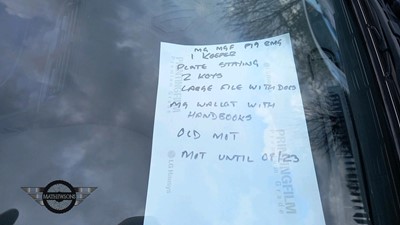 MG MGF P19 RMG
1 KEEPER
PLATE STAYING
2 KEYS
LARGE FILE WITH DOCS
MG WALLET WITH
HANDBOOKS
OLD MOT
MOT UNTIL 08/23
MATHEWSONS